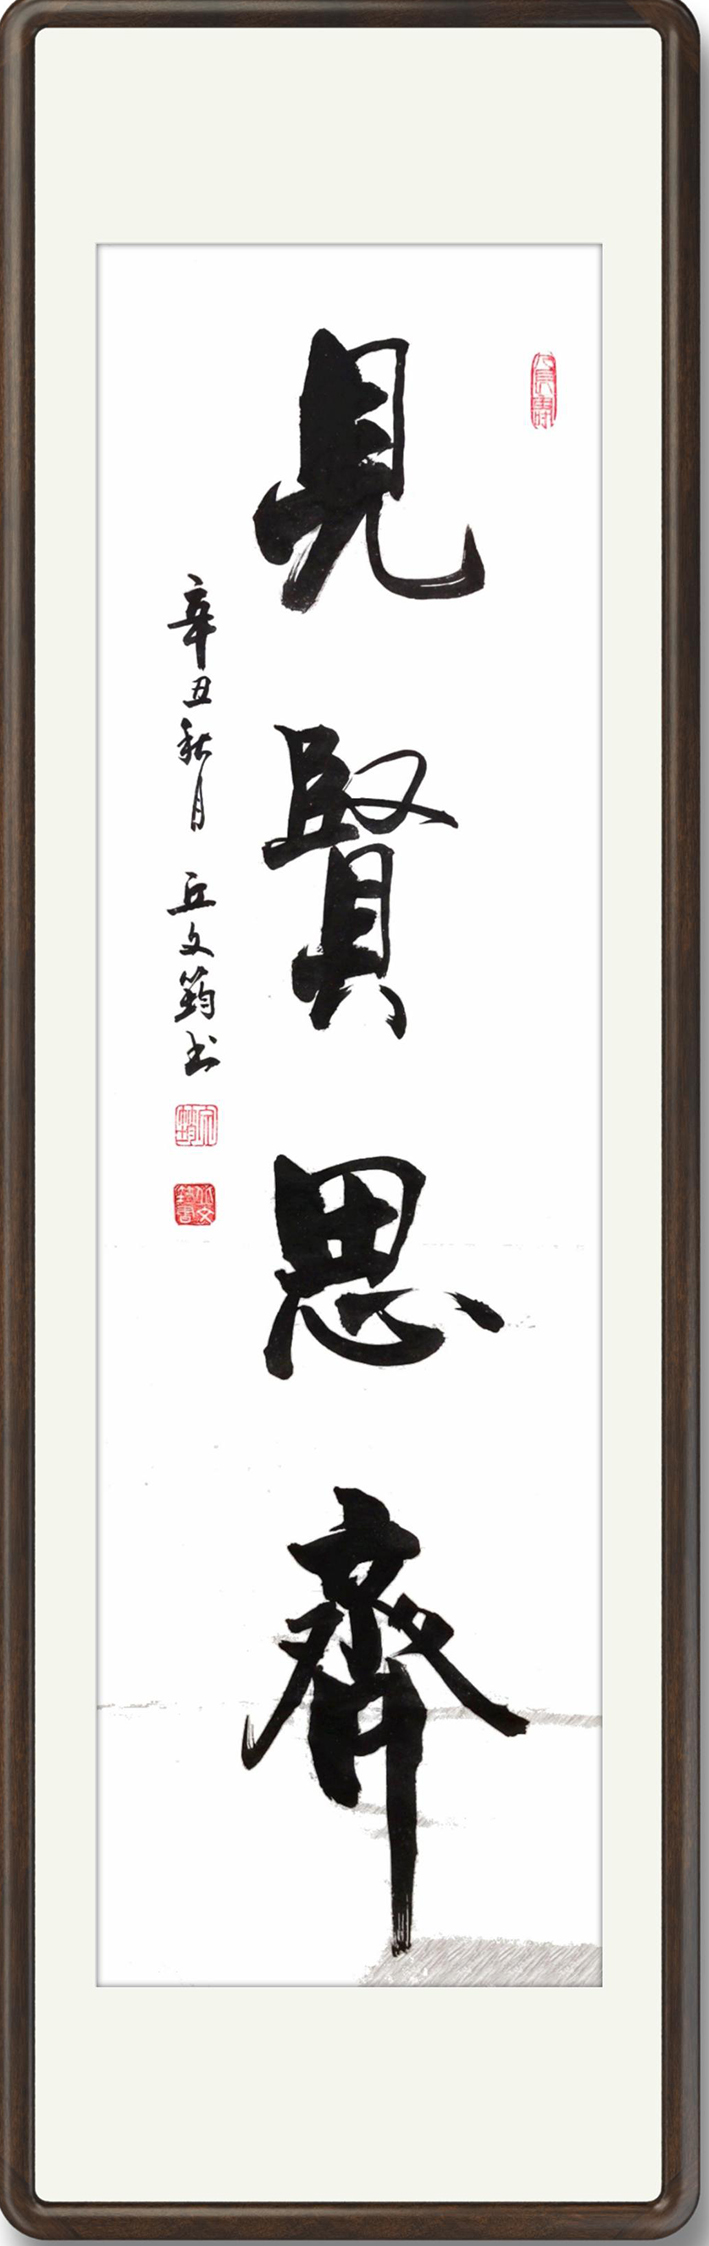 見賢思齊
辛丑秋月 丘文筠书